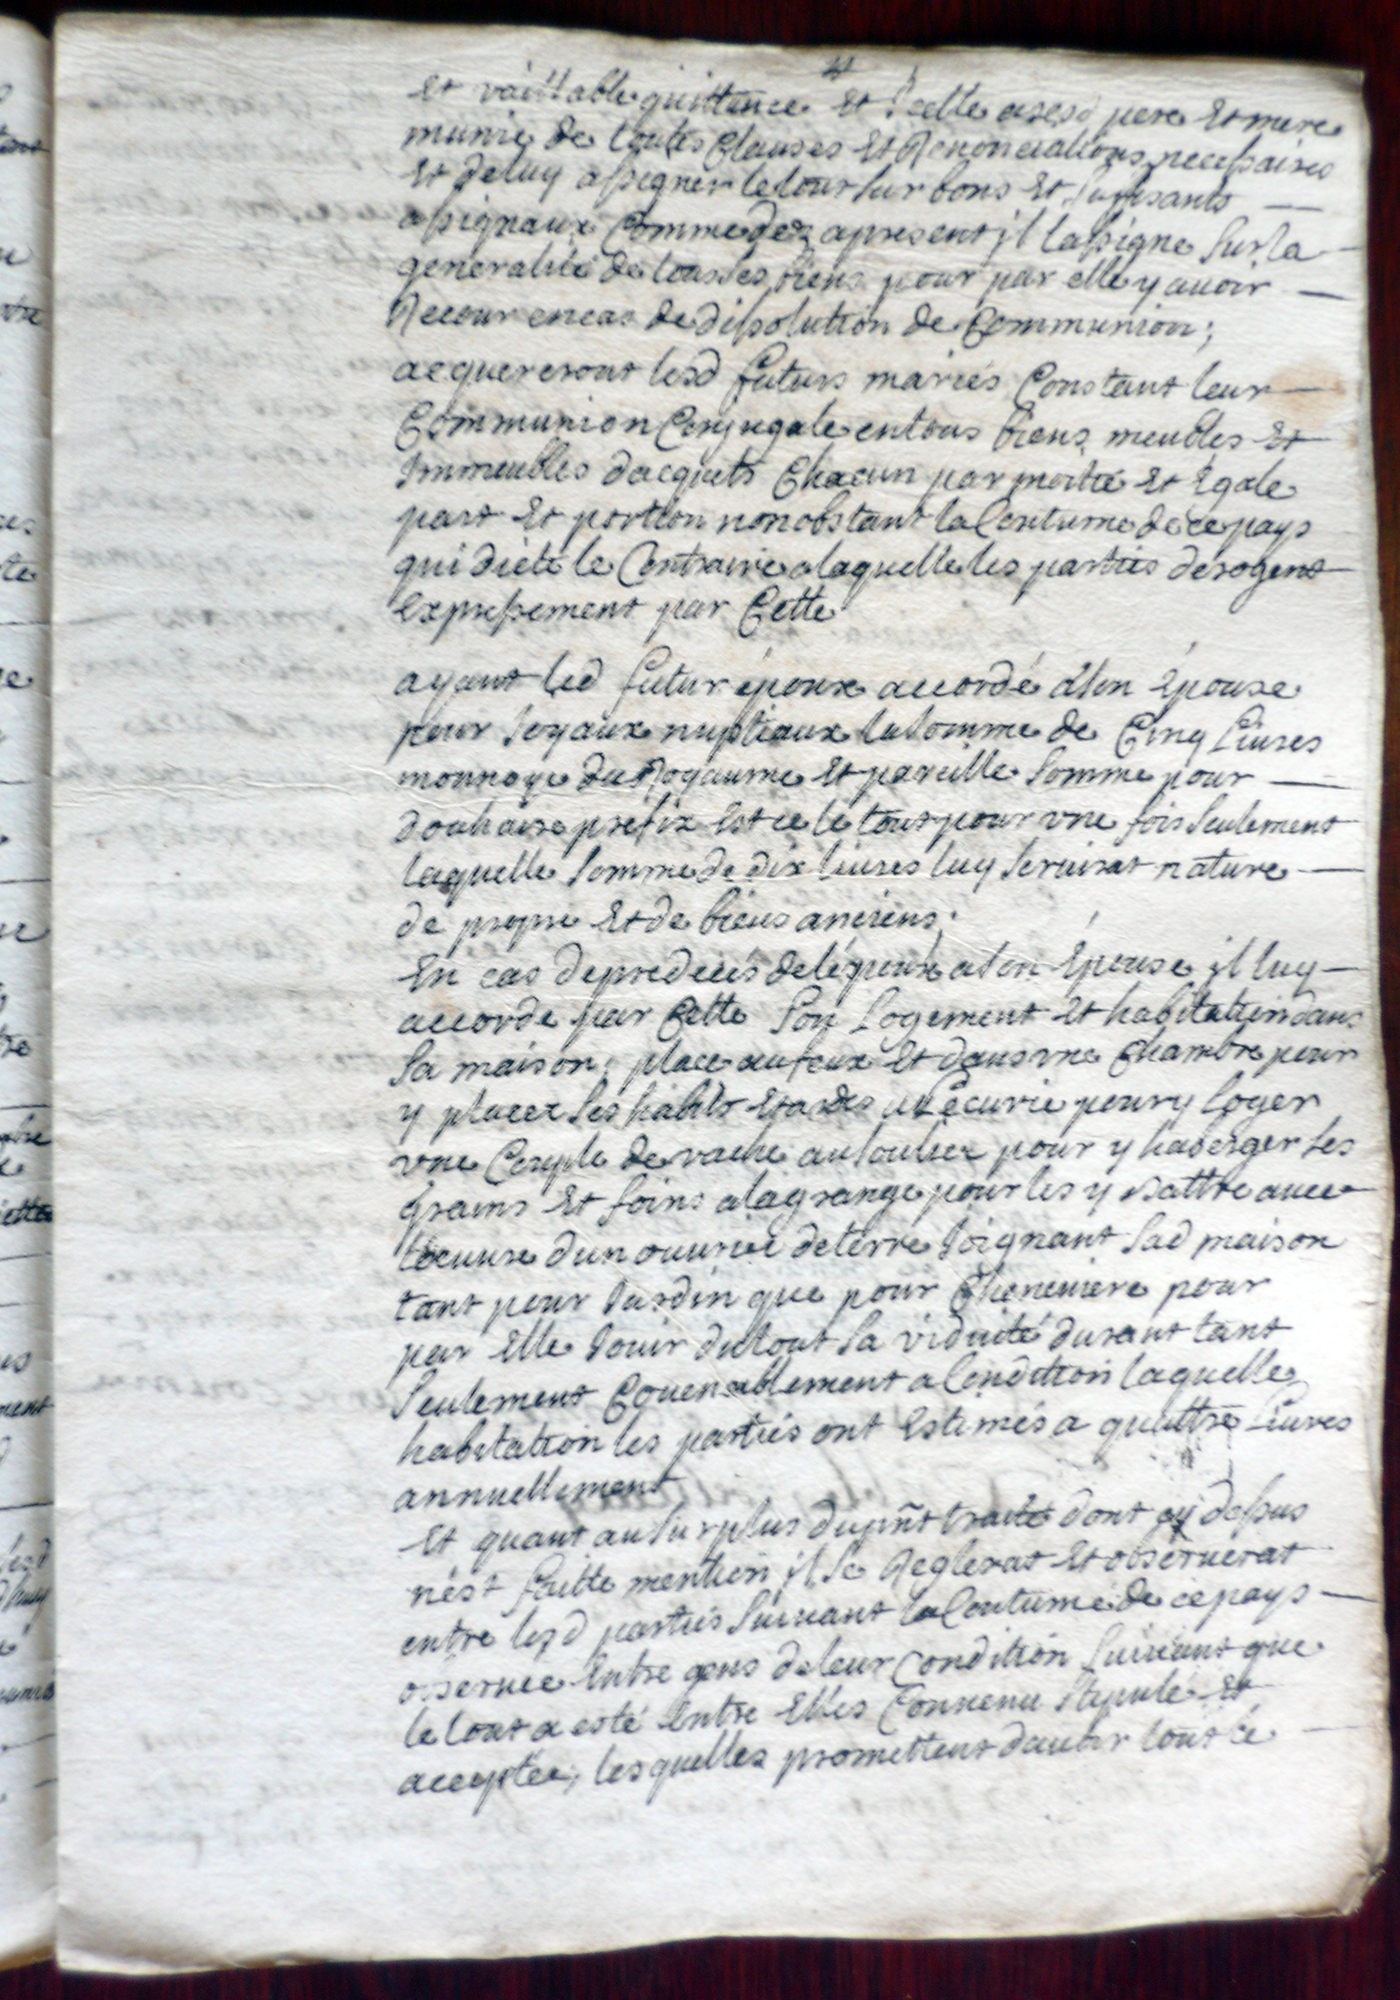 et vaillable quittance et icelle a sesd pere et mere
munie de toutes Clauses et Renonciations necessaires
et de luy assigner le tout sur bons et suffisants
assignaux Comme dez apresent jl lassigne sur la
generalité de tous ses biens pour par elle y auoir
Recour en cas de dissolution de Communion;
acquereront lesd futurs mariés Constant leur
Communion Conjugale en tous biens meubles et
Immeubles dacquets Chacun par moitié et Egale
part et portion nonobstant la Coutume de ce pays
qui dicte le Contraire a laquelle les parties derogent
expressement par Cette
ayant led futur époux accordé a son Épouse
pour Joyaux nuptiaux la somme de Cinq Liures
monnoye du Royaume et pareille somme pour
douhaire prefix est ce le tout pour vne fois seulement
laquelle somme de dix liures luy seruirat nature
de propre et de biens anciens;
En cas de predecés de lépoux a son Épouse jl luy
accorde par Cette son Logement et habitation dans
sa maison, place au feux et dans vne Chambre pour
y placer ses habits et ardes a Lécurie pour y loger
vne Couple de vache au soulier pour y haberger ses
grains et foins a la grange pour les y battre auec
dun ouurier de terre Joignant sad maison
tant pour Jardin que pour Cheneuiere pour
par Elle Jouir du tout sa viduité durant tant
seulement Couenablement a Condition laquelle
habitation les parties ont Estimés a quattre Liures
annuellement
Et quant au surplus du pnt traité dont cy dessus
nést faitte mention jl se Reglerat et obseruerat
entre lesd parties suiuant la Coutume de ce pays
obseruée Entre gens de leur Condition suiuant que
le tout a esté Entre Elles Conuenu stipulé et
acceptée, lesquelles promettent dauoir tout le